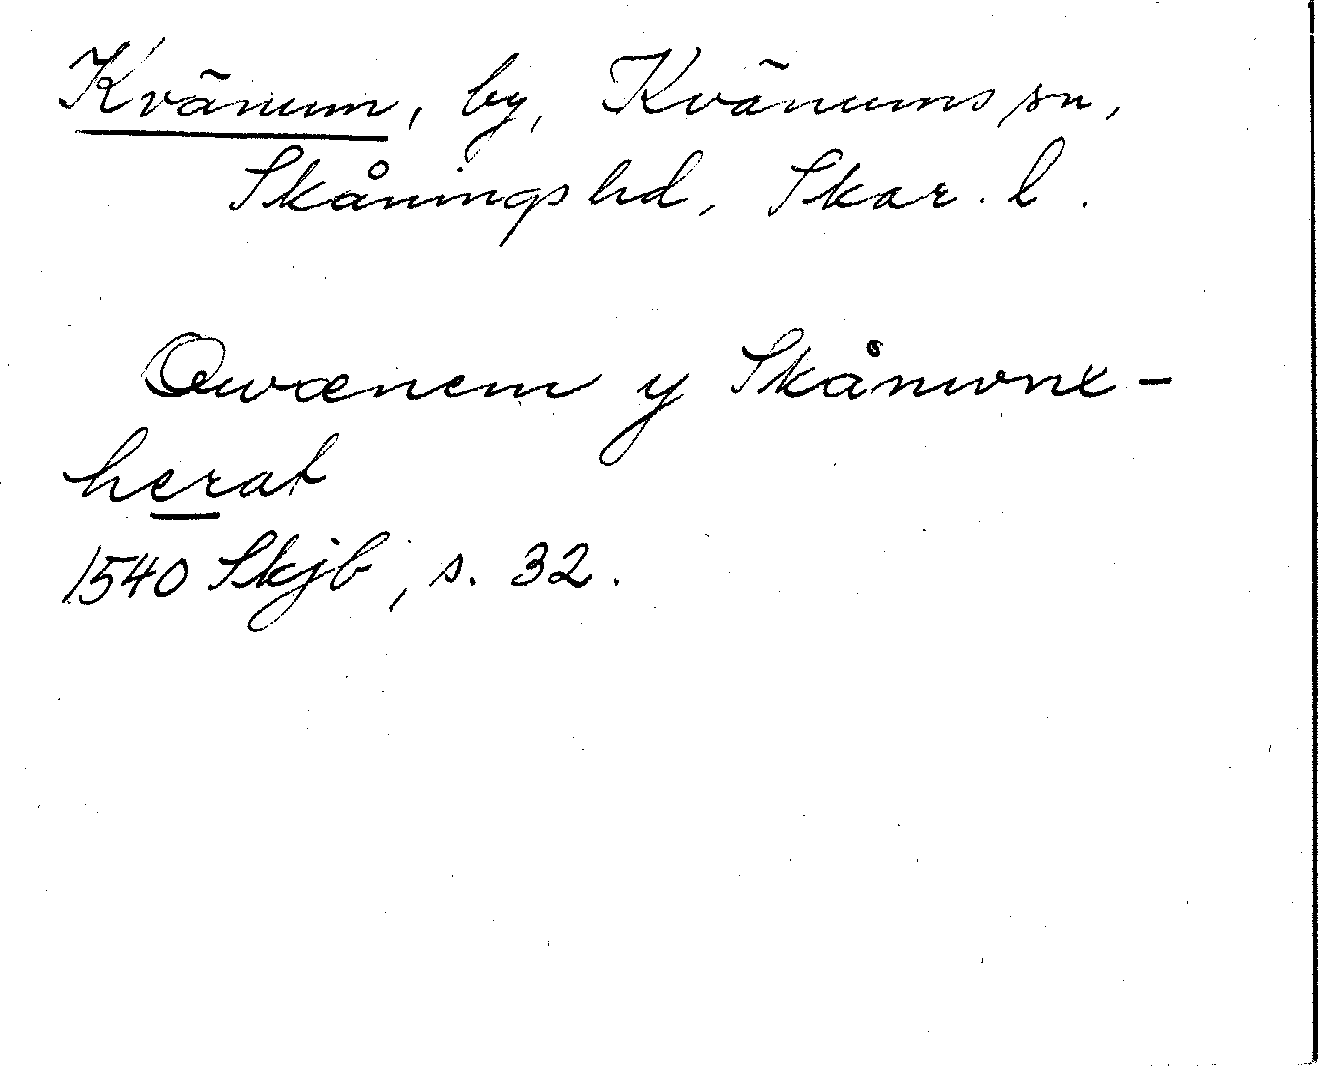 Kvänum, by, Kvänums sn,
Skånings hd, Skar. l.
Qwænem y Skånwnx-
herat
1540 Skjb, s. 32.